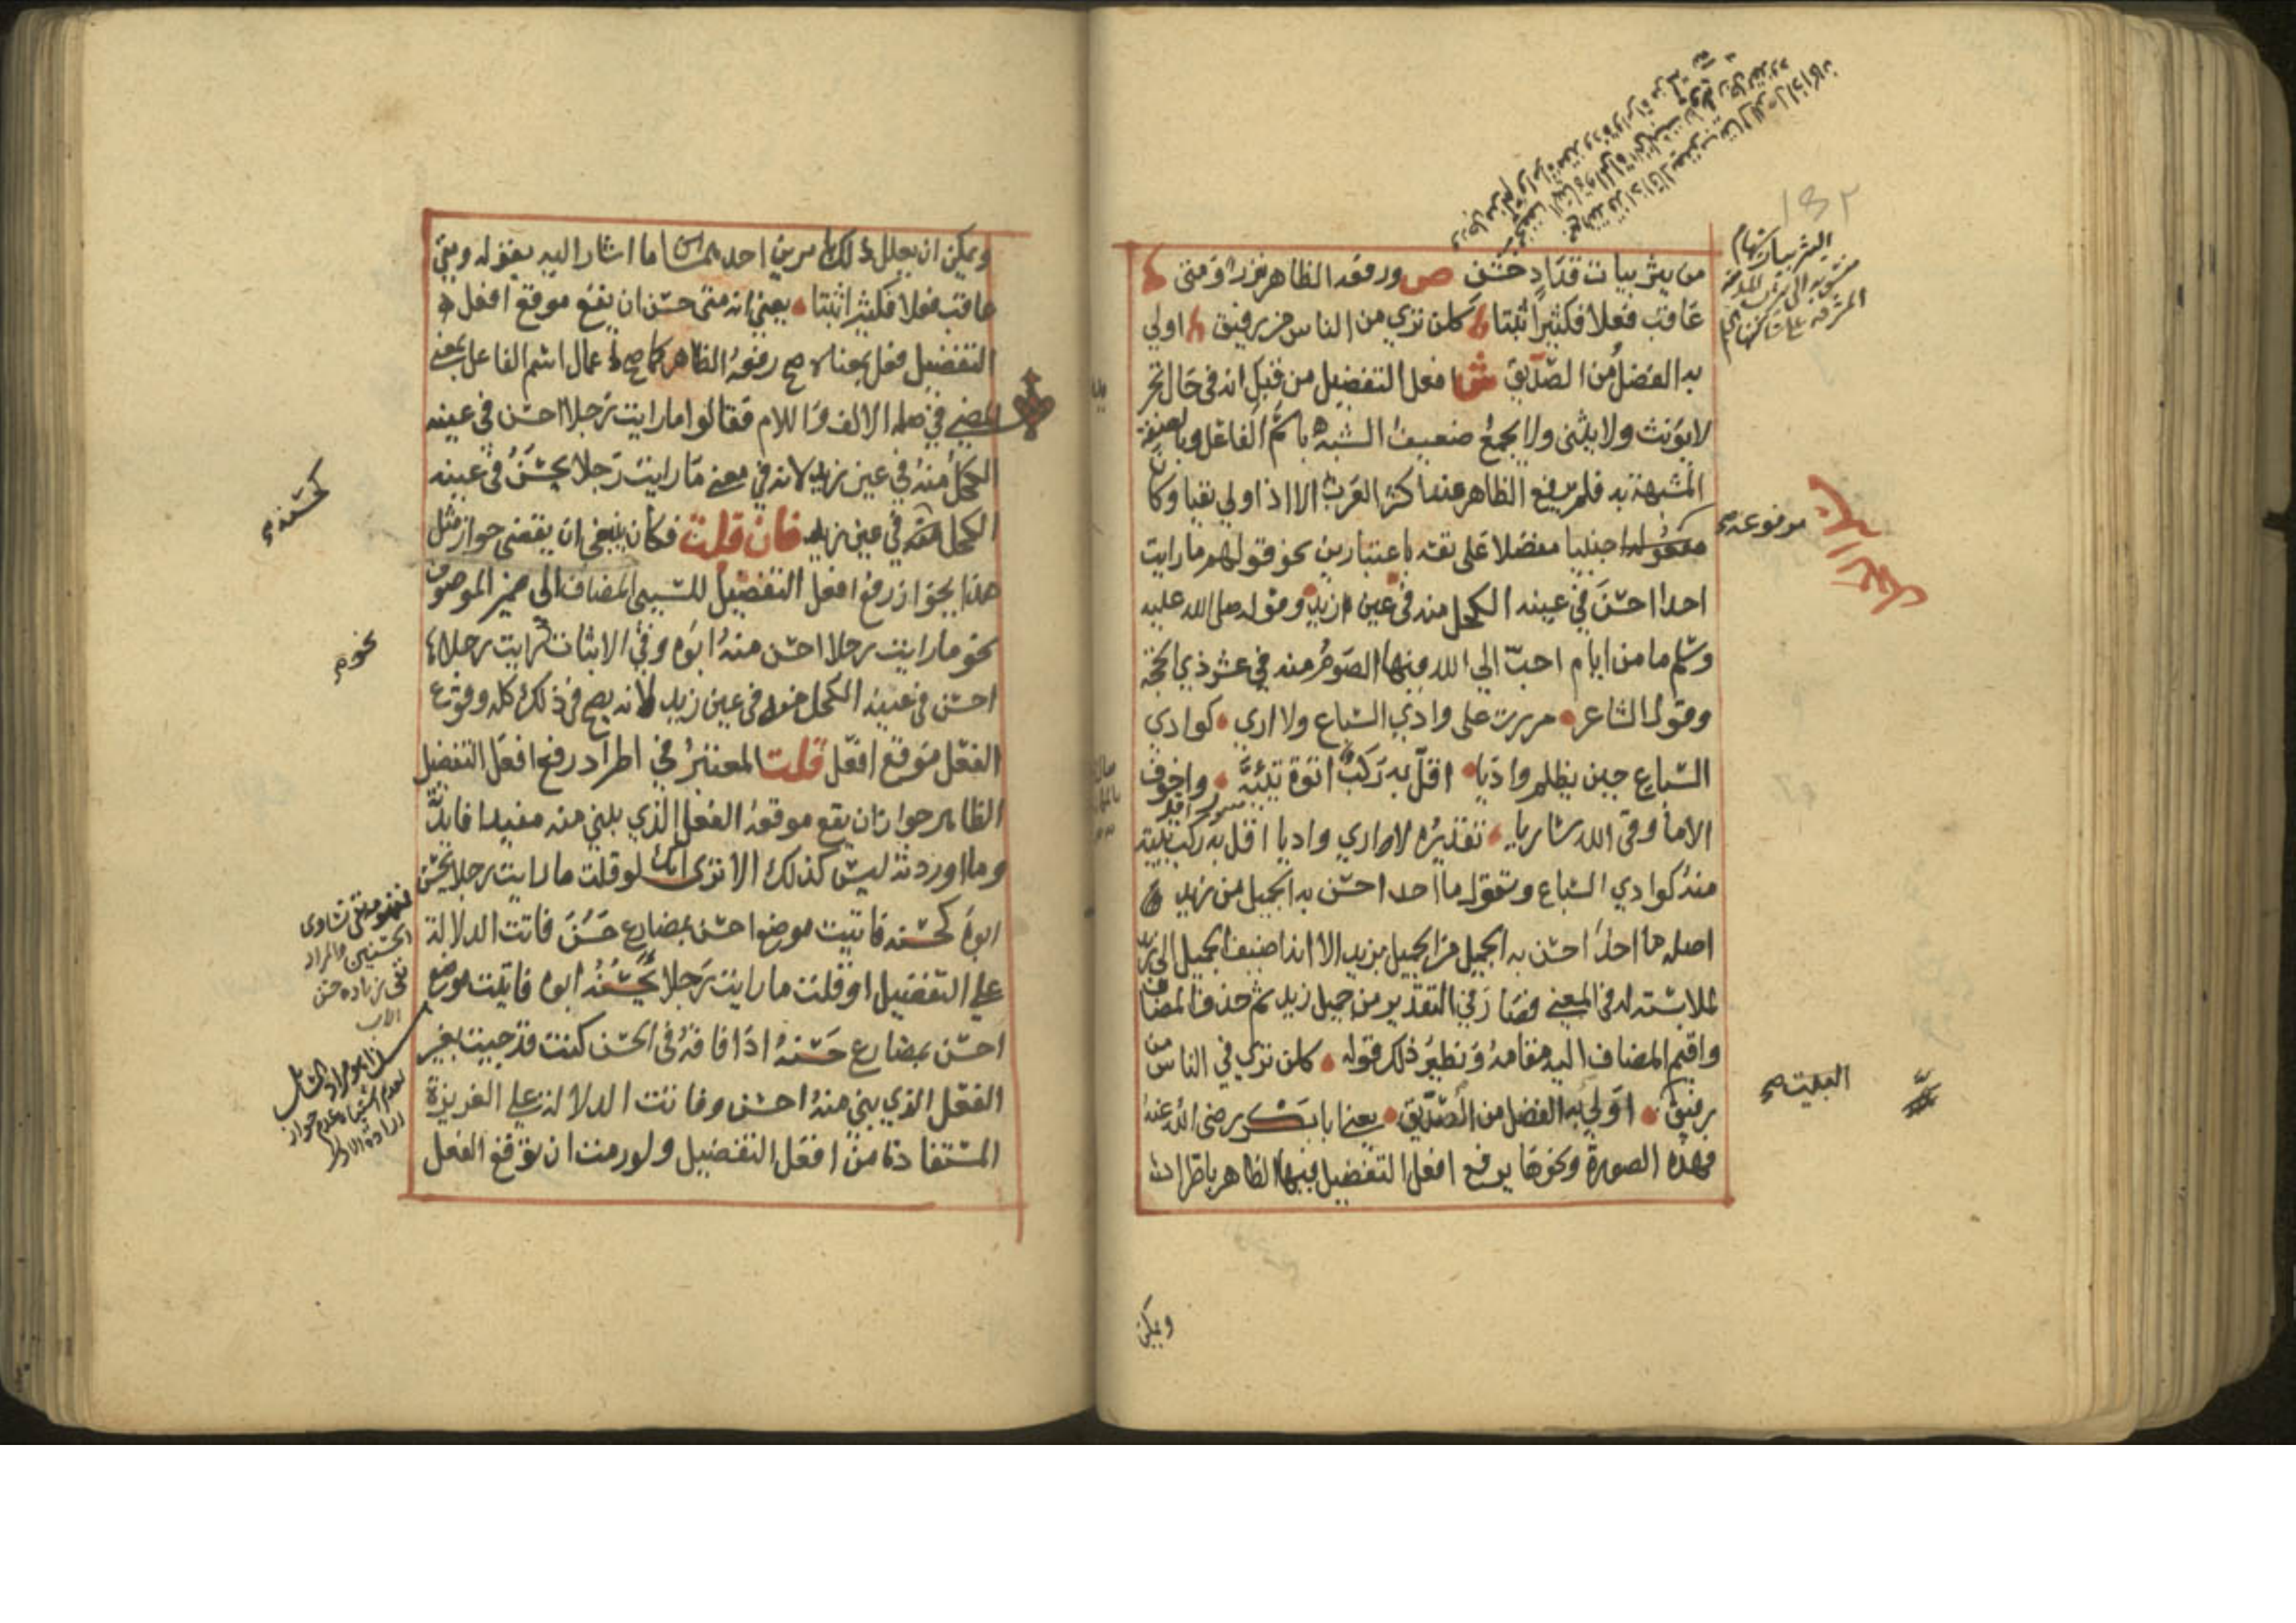 من يثربيات قداد خشن ص ورفعه الظاهر نزر ومتى
عاقب فعلا فكثيرا ثبتا كلن تري من الناس من رفيق اولي
به الفضل من الصديق ش افعل التفضيل من قبل انه في حال تجرده
لا يونث ولا يثنى ولا يجمع ضعيف الشبه باسم الفاعل وبالصفة
المشبهة به فلم يرفع الظاهر عند اكثر العرب الا اذا ولي نفيا وكان
مرفوعه اجنبيا مفضلا على نفسه باعتبارين نحو قولهم ما رايت
احدا احسن في عينه الكحل منه في عين زيد وقوله صلى الله عليه
وسلم ما من ايام احب الي الله فيها الصوم منه في عشر ذي الحجة
وقول الشاعر مررت على وادي السباع ولا اري كوادي
السباع حين يظلم واديا اقل به ركب اتوه تئية واخوف
الا ما وقى الله ساريا تقديره لا اري واديا اقل به ركب تئية
منه كوادي السباع وتقول ما احد احسن به الجميل من زيد
اصله ما احد احسن به الجميل من الجميل بزيد الا انه اضيف الجميل الى زيد
لملابسته له في المعنى فصار في التقدير من جميل زيد ثم حذف المضاف
واقيم المضاف اليه مقامه ونظير ذلك قوله كلن تري في الناس من
رفيق اولي به الفضل من الصديق يعني ابا بكر رضي الله عنه
فهذه الصورة ونحوها يرفع افعل التفضيل فيها الظاهر باطراد
مرفوعه صح
ويمكن
ويمكن ان يعلل ذلك بامرين احدهما ما اشار اليه بقوله ومتى
عاقب فعلا فكثيرا ثبتا يعني انه متى حسن ان يقع موقع افعل
التفضيل فعل بمعناه صح رفعه الظاهر كما صح اعمال اسم الفاعل بمعنى
المضي في صلة الالف واللام فقالوا ما رايت رجلا احسن في عينه
الكحل منه في عين زيد لانه في معنى ما رايت رجلا يحسن في عينه
الكحل في عين زيد فان قلت فكان ينبغي ان يقتضي جواز مثل
هذا بجواز رفع افعل التفضيل للسببي المضاف الى ضمير الموصوف
نحو ما رايت رجلا احسن منه ابوه وفي الاثبات رايت رجلا
احسن في عينه الكحل منه في عين زيد لانه يصح في ذلك كله وقوع
الفعل موقع افعل قلت المعتبر في اطراد رفع افعل التفضيل
الظاهر جواز ان يقع موقعه الفعل الذي بني منه مفيدا فايدته
وما اوردته ليس كذلك الا ترى انك لو قلت ما رايت رجلا يحسن
ابوه كحسنه فاتيت موضع احسن بمضارع حسن فاتت الدلالة
علي التفضيل او قلت ما رايت رجلا يحسنه ابوه فاتيت موضع
احسن بمضارع حسنه اذا فاقه في الحسن كنت قد جيت بغير
الفعل الذي بني منه احسن وفاتت الدلالة علي الغريزة
المستفادة من افعل التفضيل ولو رمت ان توقع الفعل
كحسنه
نحو